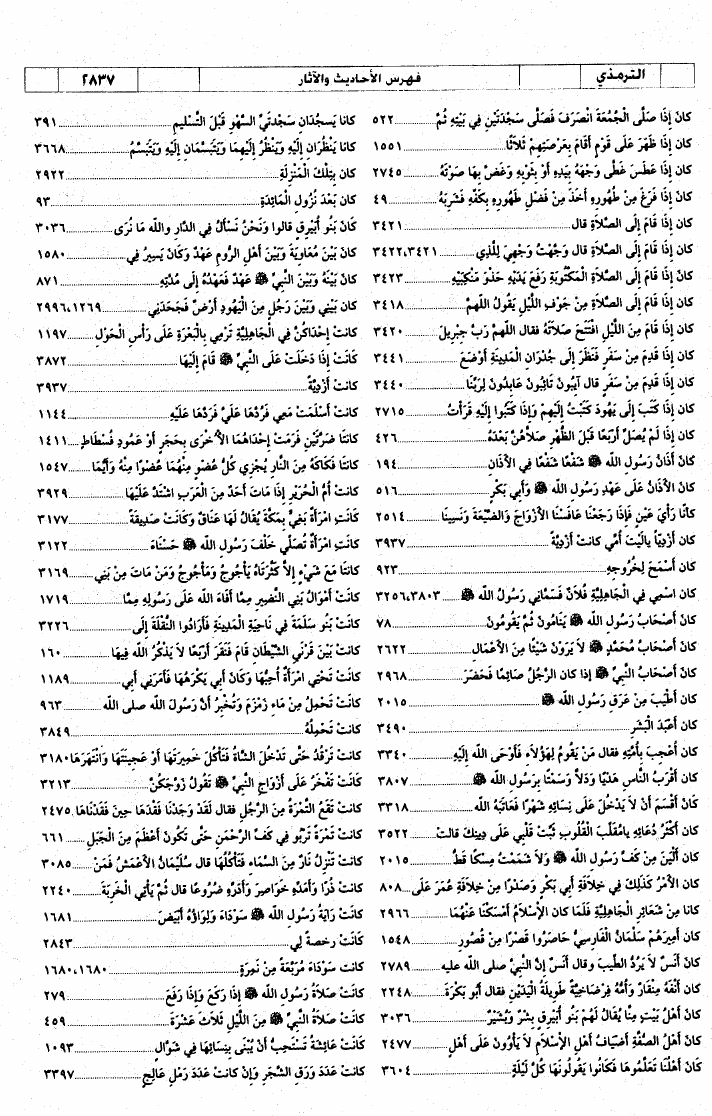 الترمذي فهرس الأحاديث والآثار ٢٨٣٧
كَانَ إِذَا صَلَّى الْجُمُعَةَ انْصَرَفَ فَصَلَّى سَجْدَتَيْنِ فِي بَيْتِهِ ثُمَّ ٥٢٢
كان إِذَا ظَهَرَ عَلَى قَوْمٍ أَقَامَ بِعَرْصَتِهِمْ ثَلَاثًا ١٥٥١
كان إِذَا عَطَسَ غَطَّى وَجْهَهُ بِيَدِهِ أَوْ بِثَوْبِهِ وَغَضَّ بِهَا صَوْتَهُ ٢٧٤٥
كَانَ إِذَا فَرَغَ مِنْ طُهُورِهِ أَخَذَ مِنْ فَضْلِ طَهُورِهِ بِكَفِّهِ فَشَرِبَهُ ٤٩
كان إِذَا قَامَ إِلَى الصَّلَاةِ قال ٣٤٢١
كان إِذَا قَامَ إِلَى الصَّلَاةِ قال وَجَّهْتُ وَجْهِيَ لِلَّذِي ٣٤٢٢،٣٤٢١
كان إِذَا قَامَ إِلَى الصَّلَاةِ الْمَكْتُوبَةِ رَفَعَ يَدَيْهِ حَذْوَ مَنْكِبَيْهِ ٣٤٢٣
كان إِذَا قَامَ إِلَى الصَّلَاةِ مِنْ جَوْفِ اللَّيْلِ يَقُولُ اللَّهمَّ ٣٤١٨
كان إِذَا قَامَ مِنَ اللَّيْلِ افْتَتَحَ صَلَاتَهُ فقال اللَّهمَّ رَبَّ جِبْرِيلَ ٣٤٢٠
كان إِذَا قَدِمَ مِنْ سَفَرٍ فَنَظَرَ إِلَى جُدْرَانِ الْمَدِينَةِ أَوْضَعَ ٣٤٤١
كان إِذَا قَدِمَ مِنْ سَفَرٍ قال آيِبُونَ تَائِبُونَ عَابِدُونَ لِرَبِّنَا ٣٤٤٠
كان إِذَا كَتَبَ إِلَى يَهُودَ كَتَبْتُ إِلَيْهِمْ وَإِذَا كَتَبُوا إِلَيْهِ قَرَأْتُ ٢٧١٥
كان إِذَا لَمْ يُصَلِّ أَرْبَعًا قَبْلَ الظُّهْرِ صَلَّاهُنَّ بَعْدَهُ ٤٢٦
كَانَ أَذَانُ رَسُولِ اللهِ ﷺ شَفْعًا شَفْعًا فِي الأَذَانِ ١٩٤
كان الأَذَانُ عَلَى عَهْدِ رَسُولِ اللهِ ﷺ وَأَبِي بَكْرٍ ٥١٦
كَأَنَّا رَأْيَ عَيْنٍ فَإِذَا رَجَعْنَا عَافَسْنَا الأَزْوَاجَ وَالضَّيْعَةَ وَنَسِينَا ٢٥١٤
كان أَزْدِيًّا يالَيْتَ أُمِّي كانت أَزْدِيَّةً ٣٩٣٧
كان أَسْمَحَ لِخُرُوجِهِ ٩٢٣
كَانَ اسمي فِي الْجَاهِلِيَّةِ فُلَانٌ فَسَمَّانِي رَسُولُ اللهِ ﷺ ٣٢٥٦،٣٨٠٣
كان أَصْحَابُ رَسُولِ اللهِ ﷺ يَنَامُونَ ثُمَّ يَقُومُونَ ٧٨
كان أَصْحَابُ مُحَمَّدٍ ﷺ لا يَرَوْنَ شَيْئًا مِنَ الأَعْمَالِ ٢٦٢٢
كَانَ أَصْحَابُ النَّبِيِّ ﷺ إذا كان الرَّجُلُ صَائِمًا فَحَضَرَ ٢٩٦٨
كان أَطْيَبَ مِنْ عَرَقِ رَسُولِ اللهِ ﷺ ٢٠١٥
كان أَعْبَدَ الْبَشَرِ ٣٤٩٠
كان أُعْجِبَ بِأُمَّتِهِ فقال مَنْ يَقُومُ لِهَؤُلَاءِ فَأَوْحَى الله إِلَيْهِ ٣٣٤٠
كَانَ أَقْرَبُ النَّاسِ هَدْيًا وَدَلًّا وَسَمْتًا بِرَسُولِ اللهِ ﷺ ٣٨٠٧
كَانَ أَقْسَمَ أَنْ لَا يَدْخُلَ عَلَى نِسَائِهِ شَهْرًا فَعَاتَبَهُ الله ٣٣١٨
كَانَ أَكْثَرُ دُعَائِهِ يامُقَلِّبَ الْقُلُوبِ ثَبِّتْ قَلْبِي عَلَى دِينِكَ قالت ٣٥٢٢
كَانَ أَلْيَنَ مِنْ كَفِّ رَسُولِ اللهِ ﷺ وَلَا شَمَمْتُ مِسْكًا قَطُّ ٢٠١٥
كَانَ الأَمْرُ كَذَلِكَ فِي خِلَافَةِ أَبِي بَكْرٍ وَصَدْرًا مِنْ خِلَافَةِ عُمَرَ عَلَى ٨٠٨
كانا مِنْ شَعَائِرِ الْجَاهِلِيَّةِ فَلَمَّا كان الإِسْلَامُ أَمْسَكْنَا عَنْهُمَا ٢٩٦٦
كان أَمِيرَهُمْ سَلْمَانُ الْفَارِسِيُّ حَاصَرُوا قَصْرًا مِنْ قُصُورِ ١٥٤٨
كَانَ أَنَسٌ لَا يَرُدُّ الطِّيبَ وقال أَنَسٌ إِنَّ النَّبِيَّ صلى الله عليه ٢٧٨٩
كان أَنْفَهُ مِنْقَارٌ وَأُمُّهُ فِرْضَاخِيَّةٌ طَوِيلَةُ الْيَدَيْنِ فقال أَبُو بَكْرَةَ ٢٢٤٨
كان أَهْلُ بَيْتٍ مِنَّا يُقَالُ لَهُمْ بَنُو أُبَيْرِقٍ بِشْرٌ وَبُشَيْرٌ ٣٠٣٦
كَانَ أَهْلُ الصُّفَّةِ أَضْيَافُ أَهْلِ الإِسْلَامِ لَا يَأْوُونَ عَلَى أَهْلٍ ٢٤٧٧
كَانَ أَهْلُنَا تَعَلَّمُوهَا فَكَانُوا يَقُولُونَهَا كُلَّ لَيْلَةٍ ٣٦٠٤
كانا يَسجُدَان سَجْدَتَيِ السَّهْوِ قَبْلَ التَّسْلِيمِ ٣٩١
كانا يَنْظُرَانِ إِلَيْهِ وَيَنْظُرُ إِلَيْهِمَا وَيَتَبَسَّمَانِ إِلَيْهِ وَيَتَبَسَّمُ ٣٦٦٨
كان بِتِلْكَ الْمَنْزِلَةِ ٢٩٢٢
كَانَ بَعْدَ نُزُولِ الْمَائِدَةِ ٩٣
كَانَ بَنُو أُبَيْرِقٍ قالوا وَنَحْنُ نَسْأَلُ فِي الدَّارِ والله مَا نُرَى ٣٠٣٦
كَانَ بَيْنَ مُعَاوِيَةَ وَبَيْنَ أَهْلِ الرُّومِ عَهْدٌ وَكَانَ يَسِيرُ فِي ١٥٨٠
كان بَيْنَهُ وَبَيْنَ النَّبِيِّ ﷺ عَهْدٌ فَعَهْدُهُ إِلَى مُدَّتِهِ ٨٧١
كان بَيْنِي وَبَيْنَ رَجُلٍ مِنَ الْيَهُودِ أَرْضٌ فَجَحَدَنِي ٢٩٩٦،١٢٦٩
كانت إِحْدَاكُنَّ فِي الْجَاهِلِيَّةِ تَرْمِي بِالْبَعْرَةِ عَلَى رَأْسِ الْحَوْلِ ١١٩٧
كَانَتْ إِذَا دَخَلَتْ عَلَى النَّبِيِّ ﷺ قَامَ إِلَيْهَا ٣٨٧٢
كانت أَزْدِيَّةً ٣٩٣٧
كَانَتْ أَسْلَمَتْ مَعِي فَرُدَّهَا عَلَيَّ فَرَدَّهَا عَلَيْهِ ١١٤٤
كَانَتَا ضَرَّتَيْنِ فَرَمَتْ إِحْدَاهُمَا الأُخْرَى بِحَجَرٍ أَوْ عَمُودِ فُسْطَاطٍ ١٤١١
كَانَتَا فَكَاكَهُ مِنَ النَّارِ يُجْزِي كُلُّ عُضْوٍ مِنْهُمَا عُضْوًا مِنْهُ وَأَيُّمَا ١٥٤٧
كانت أُمُّ الْحُرَيْرِ إِذَا مَاتَ أَحَدٌ مِنَ الْعَرَبِ اشْتَدَّ عَلَيْهَا ٣٩٢٩
كَانَتِ امْرَأَةٌ بَغِيٌّ بِمَكَّةَ يُقَالُ لَهَا عَنَاقٌ وَكَانَتْ صَدِيقَةً ٣١٧٧
كانت امْرَأَةٌ تُصَلِّي خَلْفَ رَسُولِ اللهِ ﷺ حَسْنَاءَ ٣١٢٢
كَانَتَا مَعَ شَيْءٍ إِلَّا كَثَّرَتَاهُ يَأْجُوجُ وَمَأْجُوجُ وَمَنْ مَاتَ مِنْ بَنِي ٣١٦٩
كَانَتْ أَمْوَالُ بَنِي النَّضِيرِ مِمَّا أَفَاءَ الله عَلَى رَسُولِهِ مِمَّا ١٧١٩
كَانَتْ بَنُو سَلِمَةَ فِي نَاحِيَةِ الْمَدِينَةِ فَأَرَادُوا النُّقْلَةَ إِلَى ٣٢٢٦
كَانَتْ بَيْنَ قَرْنَيِ الشَّيْطَانِ قَامَ فَنَقَرَ أَرْبَعًا لَا يَذْكُرُ اللهَ فِيهَا ١٦٠
كَانَتْ تَحْتِي امْرَأَةٌ أُحِبُّهَا وَكَانَ أَبِي يَكْرَهُهَا فَأَمَرَنِي أَبِي ١١٨٩
كَانَتْ تَحْمِلُ مِنْ مَاءِ زَمْزَمَ وَتُخْبِرُ أَنَّ رَسُولَ الله صلى الله ٩٦٣
كَانَتْ تَحْمِلُهُ ٣٨٤٩
كَانَتْ تَرْقُدُ حتى تَدْخُلَ الشَّاةُ فَتَأْكُلَ خَمِيرَتَهَا أَوْ عَجِينَتَهَا وَانْتَهَرَهَا ٣١٨٠
كَانَتْ تَفْخَرُ عَلَى أَزْوَاجِ النَّبِيِّ ﷺ تَقُولُ زَوَّجَكُنَّ ٣٢١٣
كانت تَقَعُ التَّمْرَةُ مِنَ الرَّجُلِ فقال لَقَدْ وَجَدْنَا فَقْدَهَا حِينَ فَقَدْنَاهَا ٢٤٧٥
كانت تَمْرَةً تَرْبُو فِي كَفِّ الرَّحْمَنِ حَتَّى تَكُونَ أَعْظَمَ مِنَ الْجَبَلِ ٦٦١
كانت تَنْزِلُ نَارٌ مِنَ السَّمَاءِ فَتَأْكُلُهَا قال سُلَيْمَانُ الأَعْمَشُ فَمَنْ ٣٠٨٥
كانت ذُرًا وَأَمَدِّهِ خَوَاصِرَ وَأَدَرِّهِ ضُرُوعًا قال ثُمَّ يَأْتِي الْخَرِبَةَ ٢٢٤٠
كَانَتْ رَايَةُ رَسُولِ اللهِ ﷺ سَوْدَاءَ وَلِوَاؤُهُ أَبْيَضَ ١٦٨١
كَانَتْ رخصةً لِي ٢٨٤٣
كانت سَوْدَاءَ مُرَبَّعَةً مِنْ نَمِرَةٍ ١٦٨٠،١٦٨٠
كَانَتْ صَلَاةُ رَسُولِ اللهِ ﷺ إِذَا رَكَعَ وَإِذَا رَفَعَ ٢٧٩
كَانَتْ صَلَاةُ النَّبِيِّ ﷺ مِنَ اللَّيْلِ ثَلَاثَ عَشْرَةَ ٤٥٩
كَانَتْ عَائِشَةُ تَسْتَحِبُّ أَنْ يُبْنَى بِنِسَائِهَا فِي شَوَّالٍ ١٠٩٣
كانت عَدَدَ وَرَقِ الشَّجَرِ وَإِنْ كانت عَدَدَ رَمْلِ عَالِجٍ ٣٣٩٧